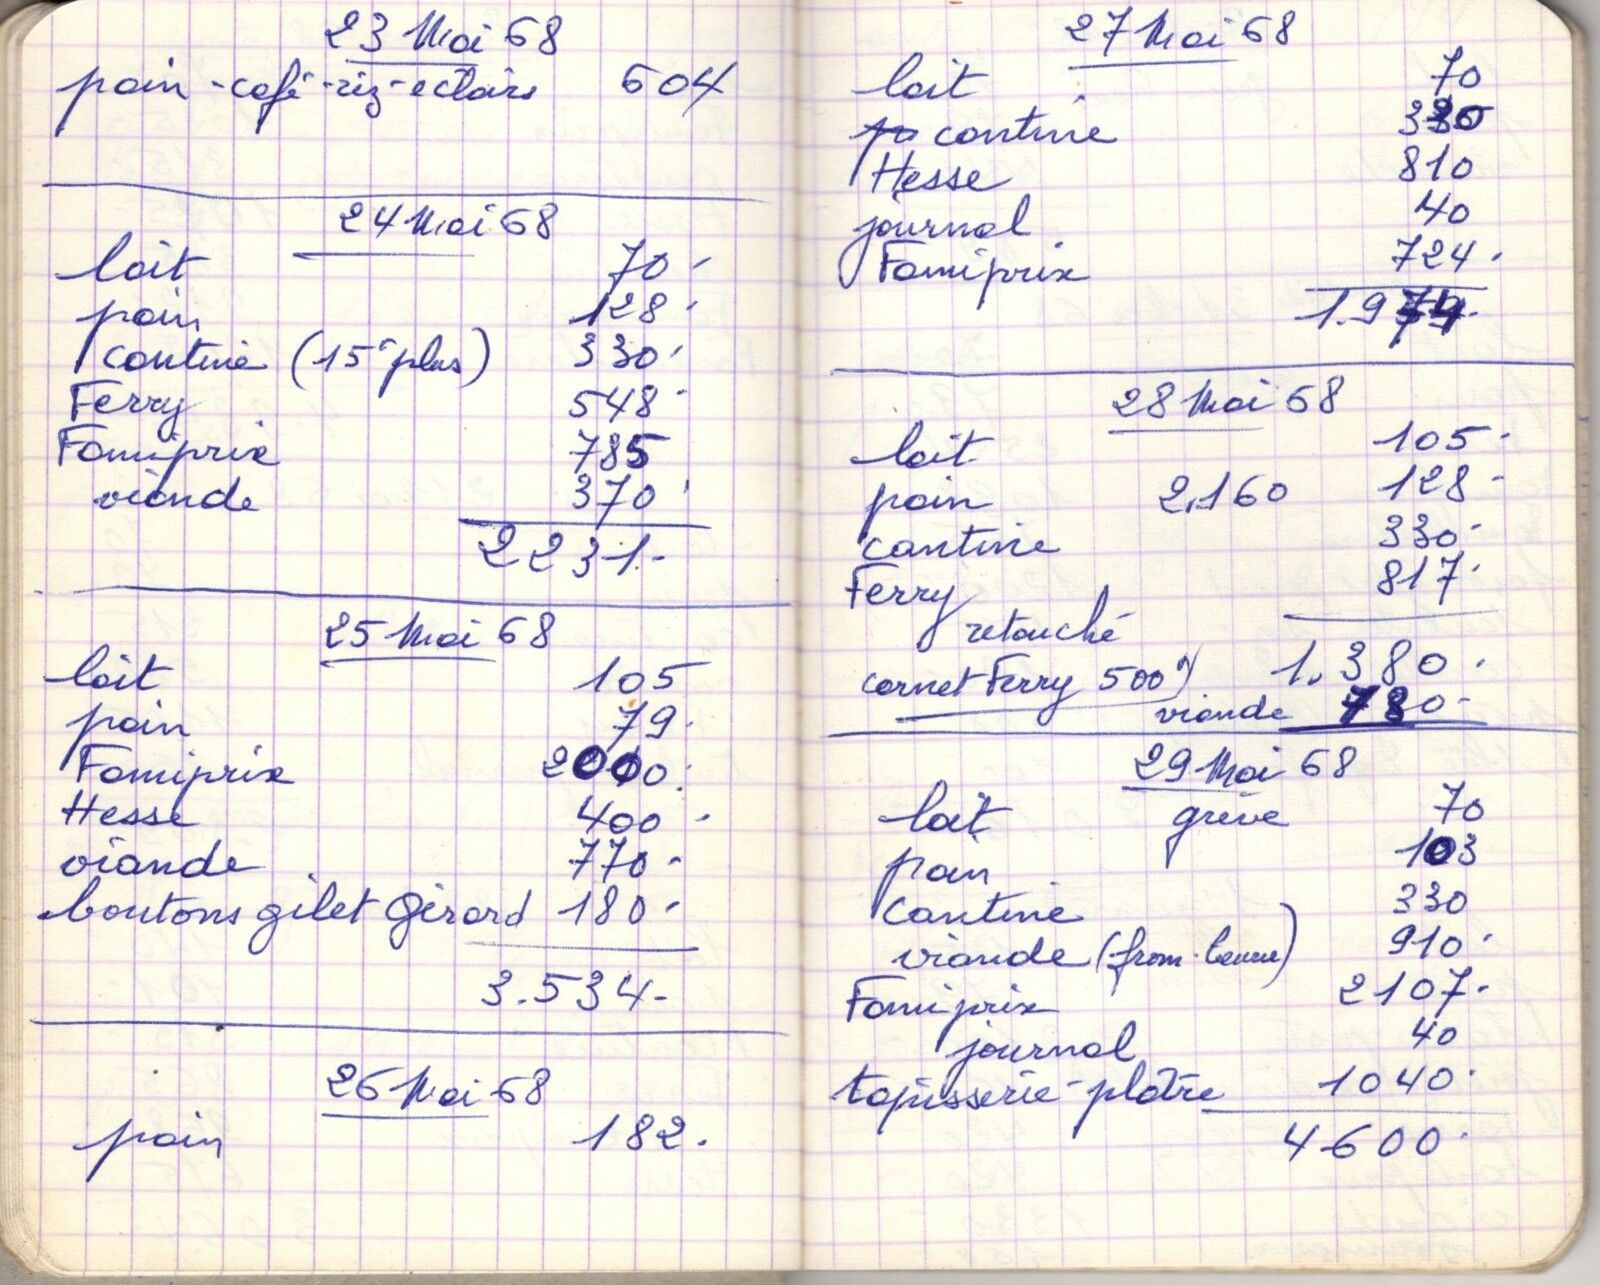 23 Mai 68
pain - café - riz - eclairs 604
24 Mai 68
lait 70
pain 128
cantine (15 plus) 330
Ferry 548
Famiprix 785
viande 370
2231.-
25 Mai 68
lait 105
pain 79
Famiprix 2000
Hesse 400
viande 770
boutons gilet Gérard 180
3.534.-
26 Mai 68
pain 182.
27 Mai 68
lait 70
cantine 330
Hesse 810
journal 40
Famiprix 724.
1.974.
28 Mai 68
lait 105
pain 2,160 128
cantine 330
Ferry 817
retouché
cornet Ferry 500) 1.380.
viande 780-
29 Mai 68
lait grève 70
pain 103
cantine 330
viande (from. beurre) 910
Famiprix 2107.
journal 40
tapisserie - platre 1040
4600.